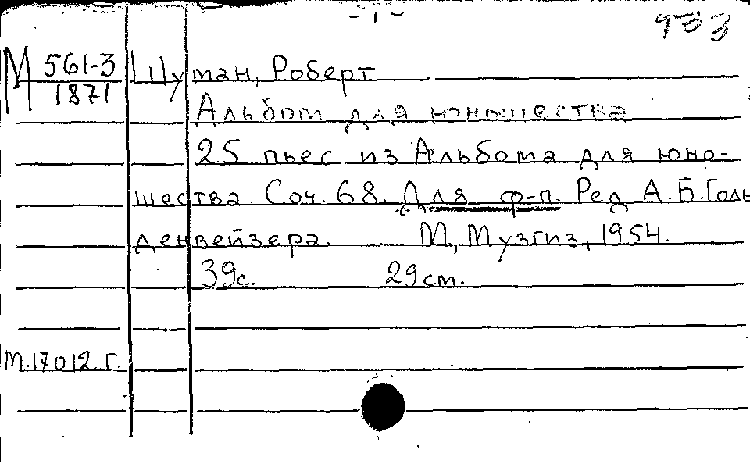 - 1 -
933
М 561-3
1871
Шуман, Роберт
Альбом для юношества
25 пьес из Альбома для юно-
шества Соч. 68. Для ф-п. Ред А. Б. Голь
денвейзера. М, Музгиз, 1954.
39с. 29 cm.
М.17012.Г.